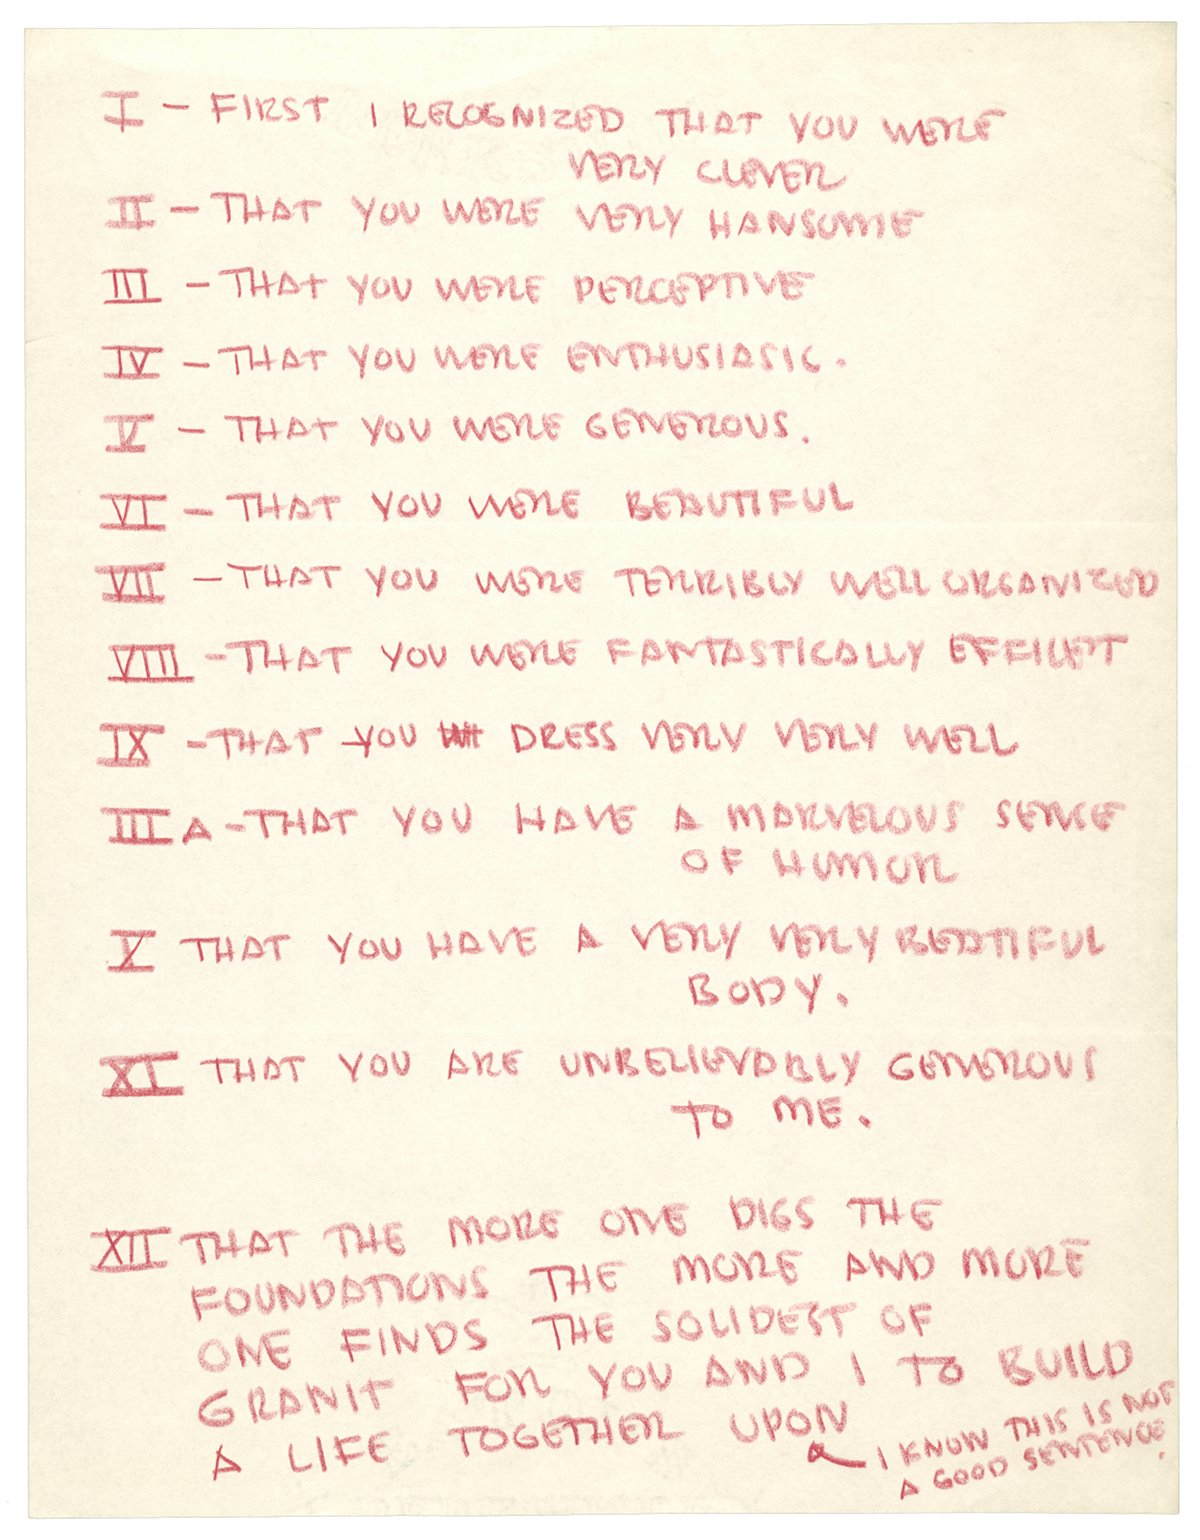 I – FIRST I RECOGNIZED THAT YOU WERE
VERY CLEVER
II – THAT YOU WERE VERY HANSOME
III – THAT YOU WERE PERCEPTIVE
IV – THAT YOU WERE ENTHUSIASIC.
V – THAT YOU WERE GENEROUS.
VI – THAT YOU WERE BEAUTIFUL
VII – THAT YOU WERE TERRIBLY WELL ORGANIZED
VIII – THAT YOU WERE FANTASTICALLY EFFICIENT
IX – THAT YOU DRESS VERY VERY WELL
III A – THAT YOU HAVE A MARVELOUS SENSE
OF HUMOR
X THAT YOU HAVE A VERY VERY BEATIFUL
BODY.
XI THAT YOU ARE UNBELIEVABLY GENEROUS
TO ME.
XII THAT THE MORE ONE DIGS THE
FOUNDATIONS THE MORE AND MORE
ONE FINDS THE SOLIDEST OF
GRANIT FOR YOU AND I TO BUILD
A LIFE TOGETHER UPON
I KNOW THIS IS NOT
A GOOD SENTENCE.